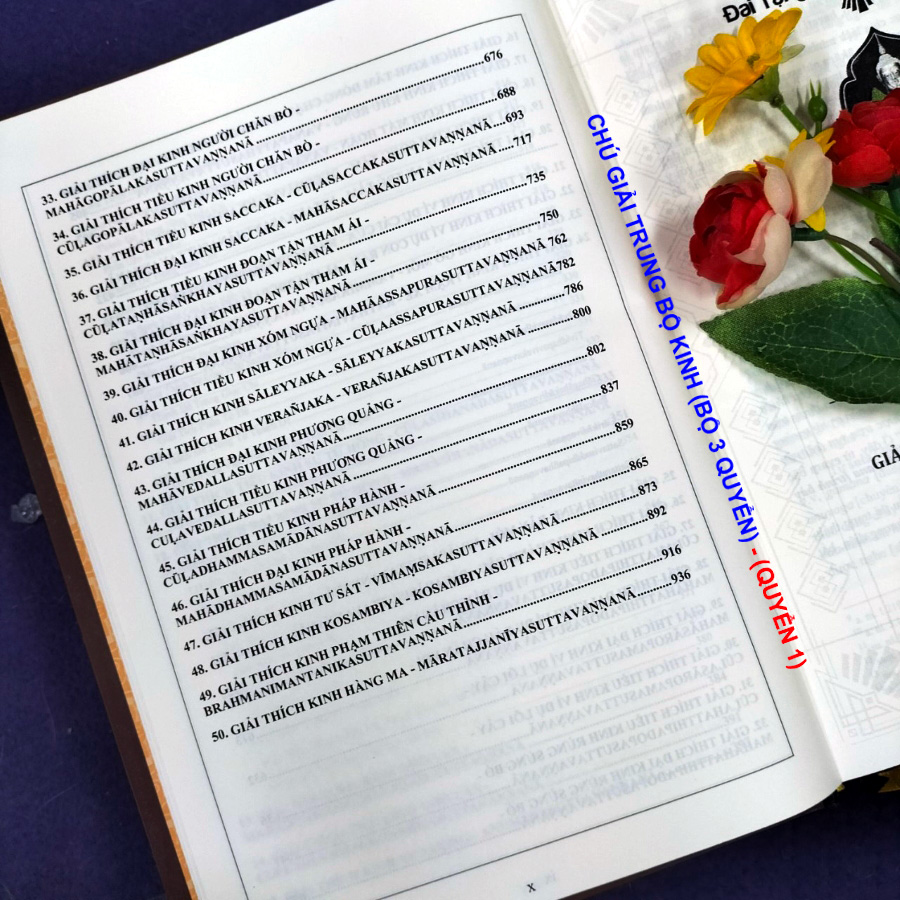 33. GIẢI THÍCH ĐẠI KINH NGƯỜI CHĂN BÒ -
MAHĀGOPĀLAKASUTTAVAṆṆANĀ.....676
34. GIẢI THÍCH TIỂU KINH NGƯỜI CHĂN BÒ -
CŪḶAGOPĀLAKASUTTAVAṆṆANĀ.....688
35. GIẢI THÍCH TIỂU KINH SACCAKA - CŪḶASACCAKASUTTAVAṆṆANĀ....693
36. GIẢI THÍCH ĐẠI KINH SACCAKA - MAHĀSACCAKASUTTAVAṆṆANĀ.....717
37. GIẢI THÍCH TIỂU KINH ĐOẠN TẬN THAM ÁI -
CŪḶATAṆHĀSAṄKHAYASUTTAVAṆṆANĀ.....735
38. GIẢI THÍCH ĐẠI KINH ĐOẠN TẬN THAM ÁI -
MAHĀTAṆHĀSAṄKHAYASUTTAVAṆṆANĀ.....750
39. GIẢI THÍCH ĐẠI KINH XÓM NGỰA - MAHĀASSAPURASUTTAVAṆṆANĀ 762
40. GIẢI THÍCH TIỂU KINH XÓM NGỰA - CŪḶAASSAPURASUTTAVAṆṆANĀ782
41. GIẢI THÍCH KINH SĀLEYYAKA - SĀLEYYAKASUTTAVAṆṆANĀ.....786
42. GIẢI THÍCH KINH VERAÑJAKA - VERAÑJAKASUTTAVAṆṆANĀ.....800
43. GIẢI THÍCH ĐẠI KINH PHƯƠNG QUẢNG -
MAHĀVEDALLASUTTAVAṆṆANĀ.....802
44. GIẢI THÍCH TIỂU KINH PHƯƠNG QUẢNG -
CUḶAVEDALLASUTTAVAṆṆANĀ.....837
45. GIẢI THÍCH TIỂU KINH PHÁP HÀNH -
CŪḶADHAMMASAMĀDĀNASUTTAVAṆṆANĀ.....859
46. GIẢI THÍCH ĐẠI KINH PHÁP HÀNH -
MAHĀDHAMMASAMĀDĀNASUTTAVAṆṆANĀ.....865
47. GIẢI THÍCH KINH TƯ SÁT - VĪMAṂSAKASUTTAVAṆṆANĀ.....873
48. GIẢI THÍCH KINH KOSAMBIYA - KOSAMBIYASUTTAVAṆṆANĀ.....892
49. GIẢI THÍCH KINH PHẠM THIÊN CẦU THỈNH -
BRAHMANIMANTANIKASUTTAVAṆṆANĀ.....916
50. GIẢI THÍCH KINH HÀNG MA - MĀRATAJJANĪYASUTTAVAṆṆANĀ.....936
X
CHÚ GIẢI TRUNG BỘ KINH (BỘ 3 QUYỂN) - (QUYỂN 1)